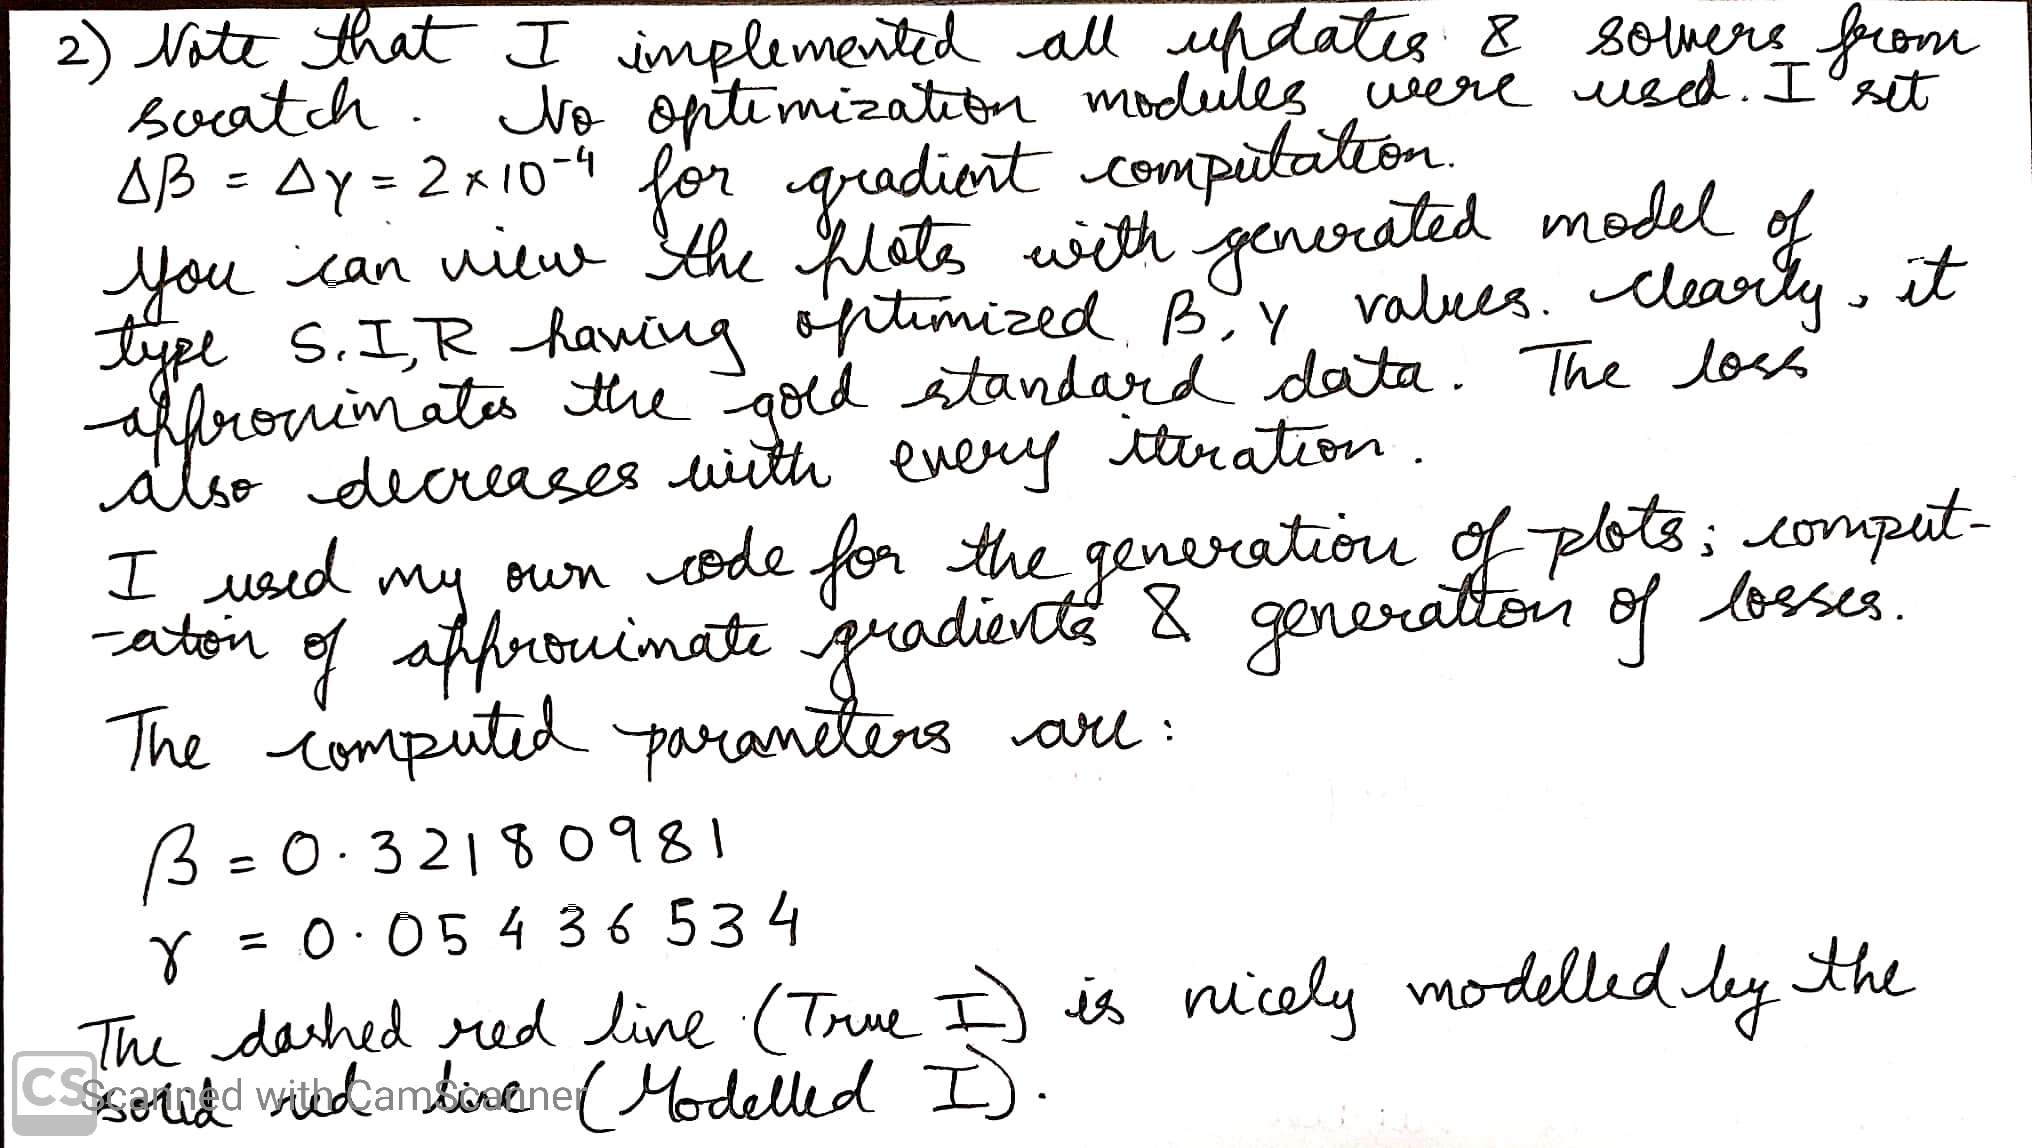 2) Note that I implemented all updates & solvers from
scratch. No optimization modules were used. I set
Δβ = Δγ = 2 × 10⁻⁴ for gradient computation.
You can view the plots with generated model of
type S, I, R having optimized β, γ values. Clearly, it
approximates the gold standard data. The loss
also decreases with every iteration.
I used my own code for the generation of plots; comput-
-aton of approximate gradients & generation of losses.
The computed parameters are:
β = 0.32180981
γ = 0.05436534
The dashed red line (True I) is nicely modelled by the
solid red line (Modelled I).
CS Scanned with CamScanner